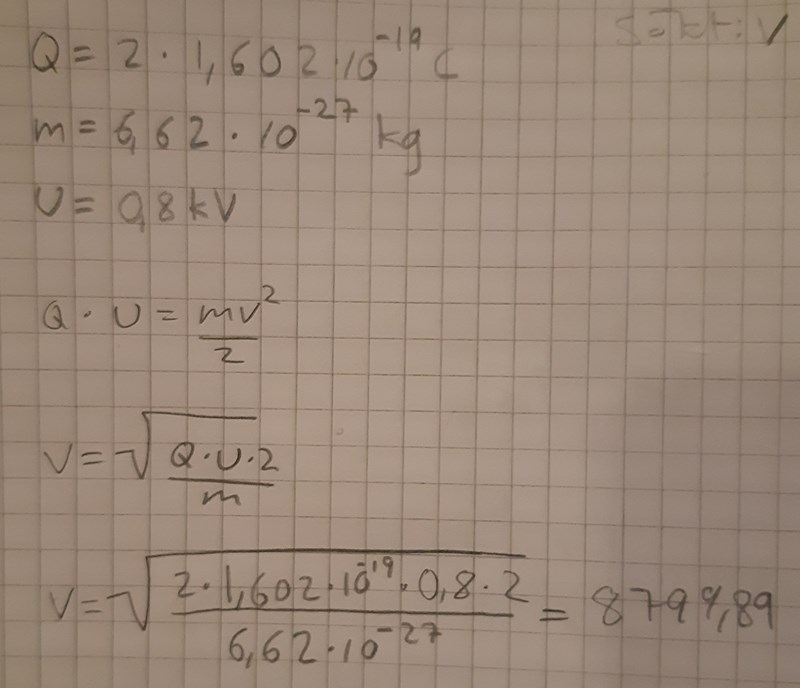 Sökt: V
Q = 2 · 1,602 · 10^-19 C
m = 6,62 · 10^-27 kg
U = 0,8 kV
Q · U = mv^2 / 2
V = √(Q · U · 2 / m)
V = √(2 · 1,602 · 10^-19 · 0,8 · 2 / 6,62 · 10^-27) = 8799,89